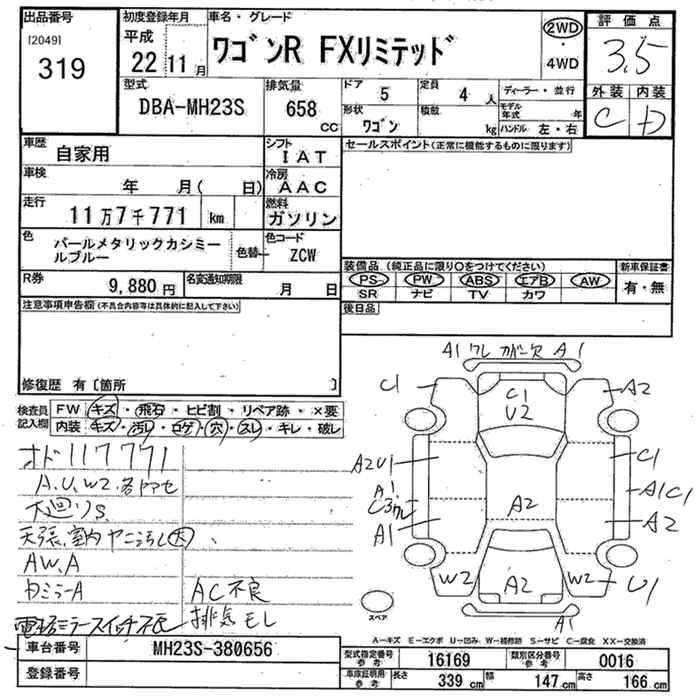 出品番号 初度登録年月 車名・グレード 評価点
[2049] 319
平成 22 11月
ワゴンR FXリミテッド
2WD・4WD
3.5
外装 内装
C D
型式 DBA-MH23S
排気量 658 CC
ドア 5 定員 4 人
ディーラー・並行
形状 ワゴン 積載 kg
モデル年式 年
ハンドル 左・右
車歴 自家用
シフト IAT
セールスポイント(正常に機能するものに限ります)
車検 年 月( 日)
冷房 AAC
走行 11万7千771 km
燃料 ガソリン
色 パールメタリックカシミールブルー
色替
色コード ZCW
装備品 (純正品に限り○をつけてください) 新車保証書
PS PW ABS エアB AW 有・無
SR ナビ TV カワ
R券 9,880円
名変通知期限 月 日
後日品
注意事項申告欄(不具合内容等は具体的に記入して下さい)
修復歴 有〔箇所 〕
検査員記入欄
FW キズ・飛石・ヒビ割・リペア跡・×要
内装 キズ・汚レ・コゲ・穴・スレ・キレ・破レ
オド117771
A.U.W2.各ヤセ
大廻りS
天張、室内ヤニ汚レ大
AW.A
カミラーA
AC不良
電格ミラースイッチ不良
排気モレ
A1 ワレ カバー欠 A1
C1
C1
U2
A2
A2U1
C1
A1
C3ワレ
A1C1
A1
A2
A2
W2
A2
W2
U1
A1
スペア
A-キズ E-エクボ U-凹み W-補修跡 S-サビ C-腐食 XX-交換済
車台番号 MH23S-380656
型式指定番号 参考 16169 類別区分番号 参考 0016
登録番号
車庫証明用 参考 長さ 339cm 幅 147cm 高さ 166cm